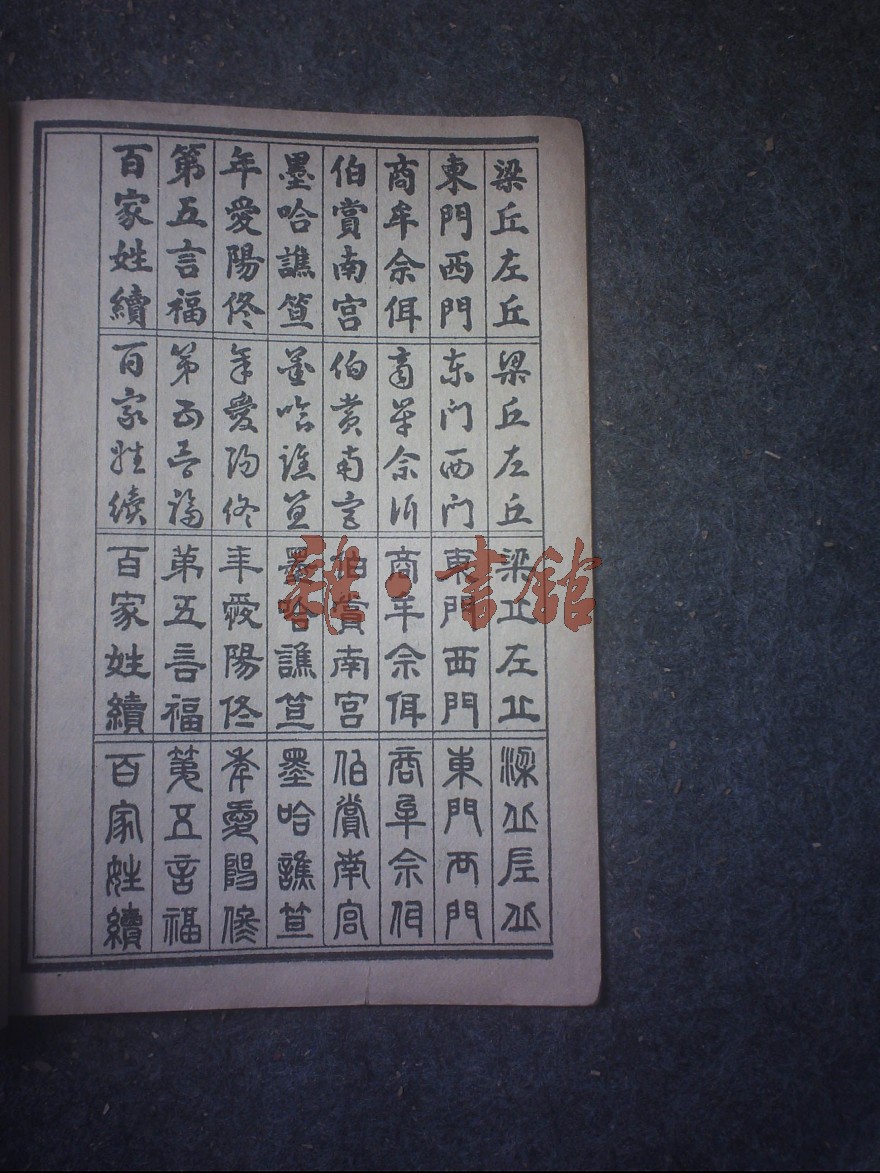 梁丘左丘
東門西門
商牟佘佴
伯賞南宫
墨哈譙笪
年愛陽佟
第五言福
百家姓續
梁丘左丘
东门西门
商牟佘佴
伯赏南宫
墨哈譙笪
年愛陽佟
第五言福
百家姓续
梁丘左丘
東門西門
商牟佘佴
伯賞南宫
墨哈譙笪
年愛陽佟
第五言福
百家姓續
梁丘左丘
東門西門
商牟佘佴
伯賞南宫
墨哈譙笪
年愛陽佟
第五言福
百家姓續
雜·書館